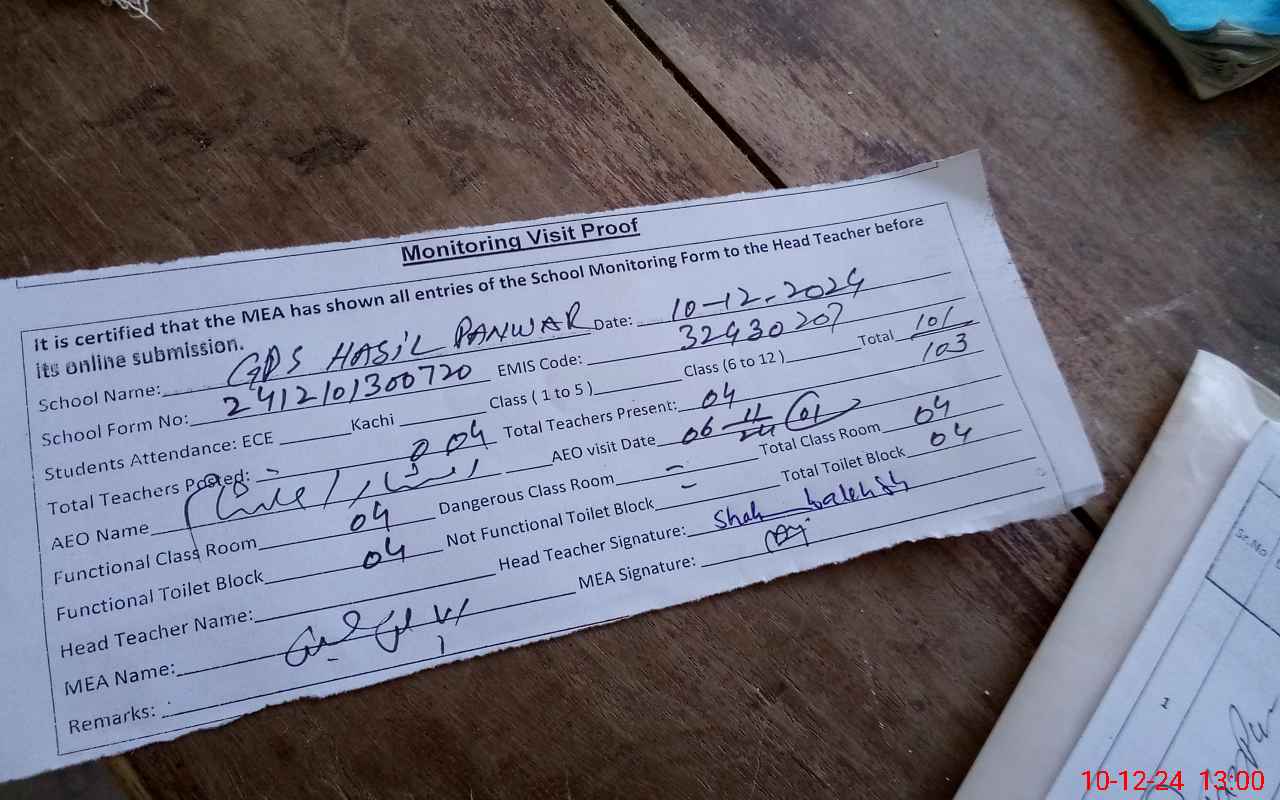 Monitoring Visit Proof
It is certified that the MEA has shown all entries of the School Monitoring Form to the Head Teacher before
its online submission.
School Name: GPS HASIL PANWAR Date: 10-12-2024
School Form No: 2412101300720 EMIS Code: 32430207
Students Attendance: ECE Kachi Class ( 1 to 5 ) Class (6 to 12 ) Total 101
103
Total Teachers Posted: 04 Total Teachers Present: 04
AEO Name AEO visit Date 06-11/24 01
Functional Class Room 04 Dangerous Class Room Total Class Room 04
Functional Toilet Block 04 Not Functional Toilet Block Total Toilet Block 04
Head Teacher Name: Head Teacher Signature: Shah
MEA Name: MEA Signature:
Remarks:
Sr.No
1
10-12-24 13:00